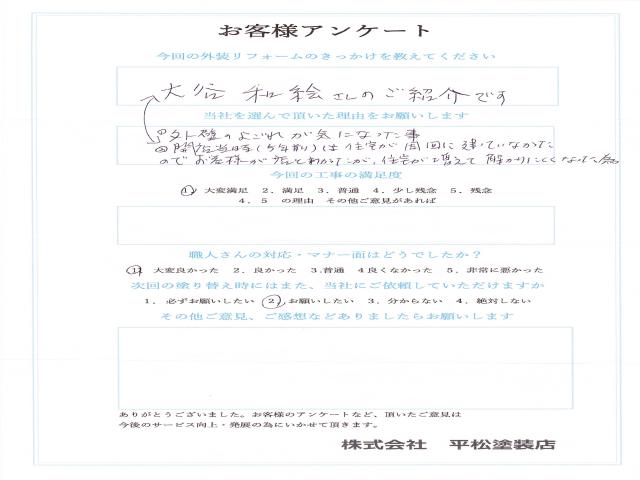 お客様アンケート
今回の外装リフォームのきっかけを教えてください
大谷 和絵さんのご紹介です
当社を選んで頂いた理由をお願いします
①外壁のよごれが気になった事
②開店当時(5年前)は住宅が周囲に建っていなかった
のでお客様が店とわかったが、住宅が増えて解かりにくくなった為
今回の工事の満足度
1. 大変満足 2. 満足 3. 普通 4. 少し残念 5. 残念
4. 5 の理由 その他ご意見があれば
職人さんの対応・マナー面はどうでしたか?
1 大変良かった 2. 良かった 3.普通 4良くなかった 5. 非常に悪かった
次回の塗り替え時にはまた、当社にご依頼していただけますか
1. 必ずお願いしたい 2. お願いしたい 3. 分からない 4. 絶対しない
その他ご意見、ご感想などありましたらお願いします
ありがとうございました。お客様のアンケートなど、頂いたご意見は
今後のサービス向上・発展の為にいかせて頂きます。
株式会社 平松塗装店